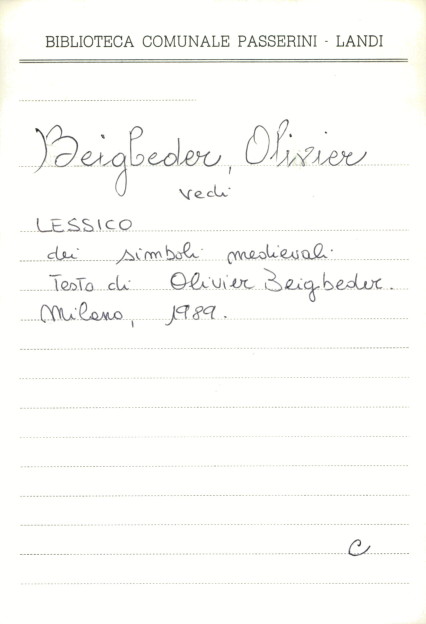 BIBLIOTECA COMUNALE PASSERINI - LANDI
Beigbeder, Olivier
vedi
LESSICO
dei simboli medievali.
Testo di Olivier Beigbeder.
Milano, 1989.
C